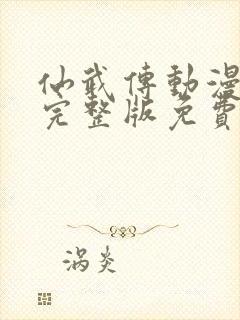 仙武傳動漫
完整版免費
涡炎